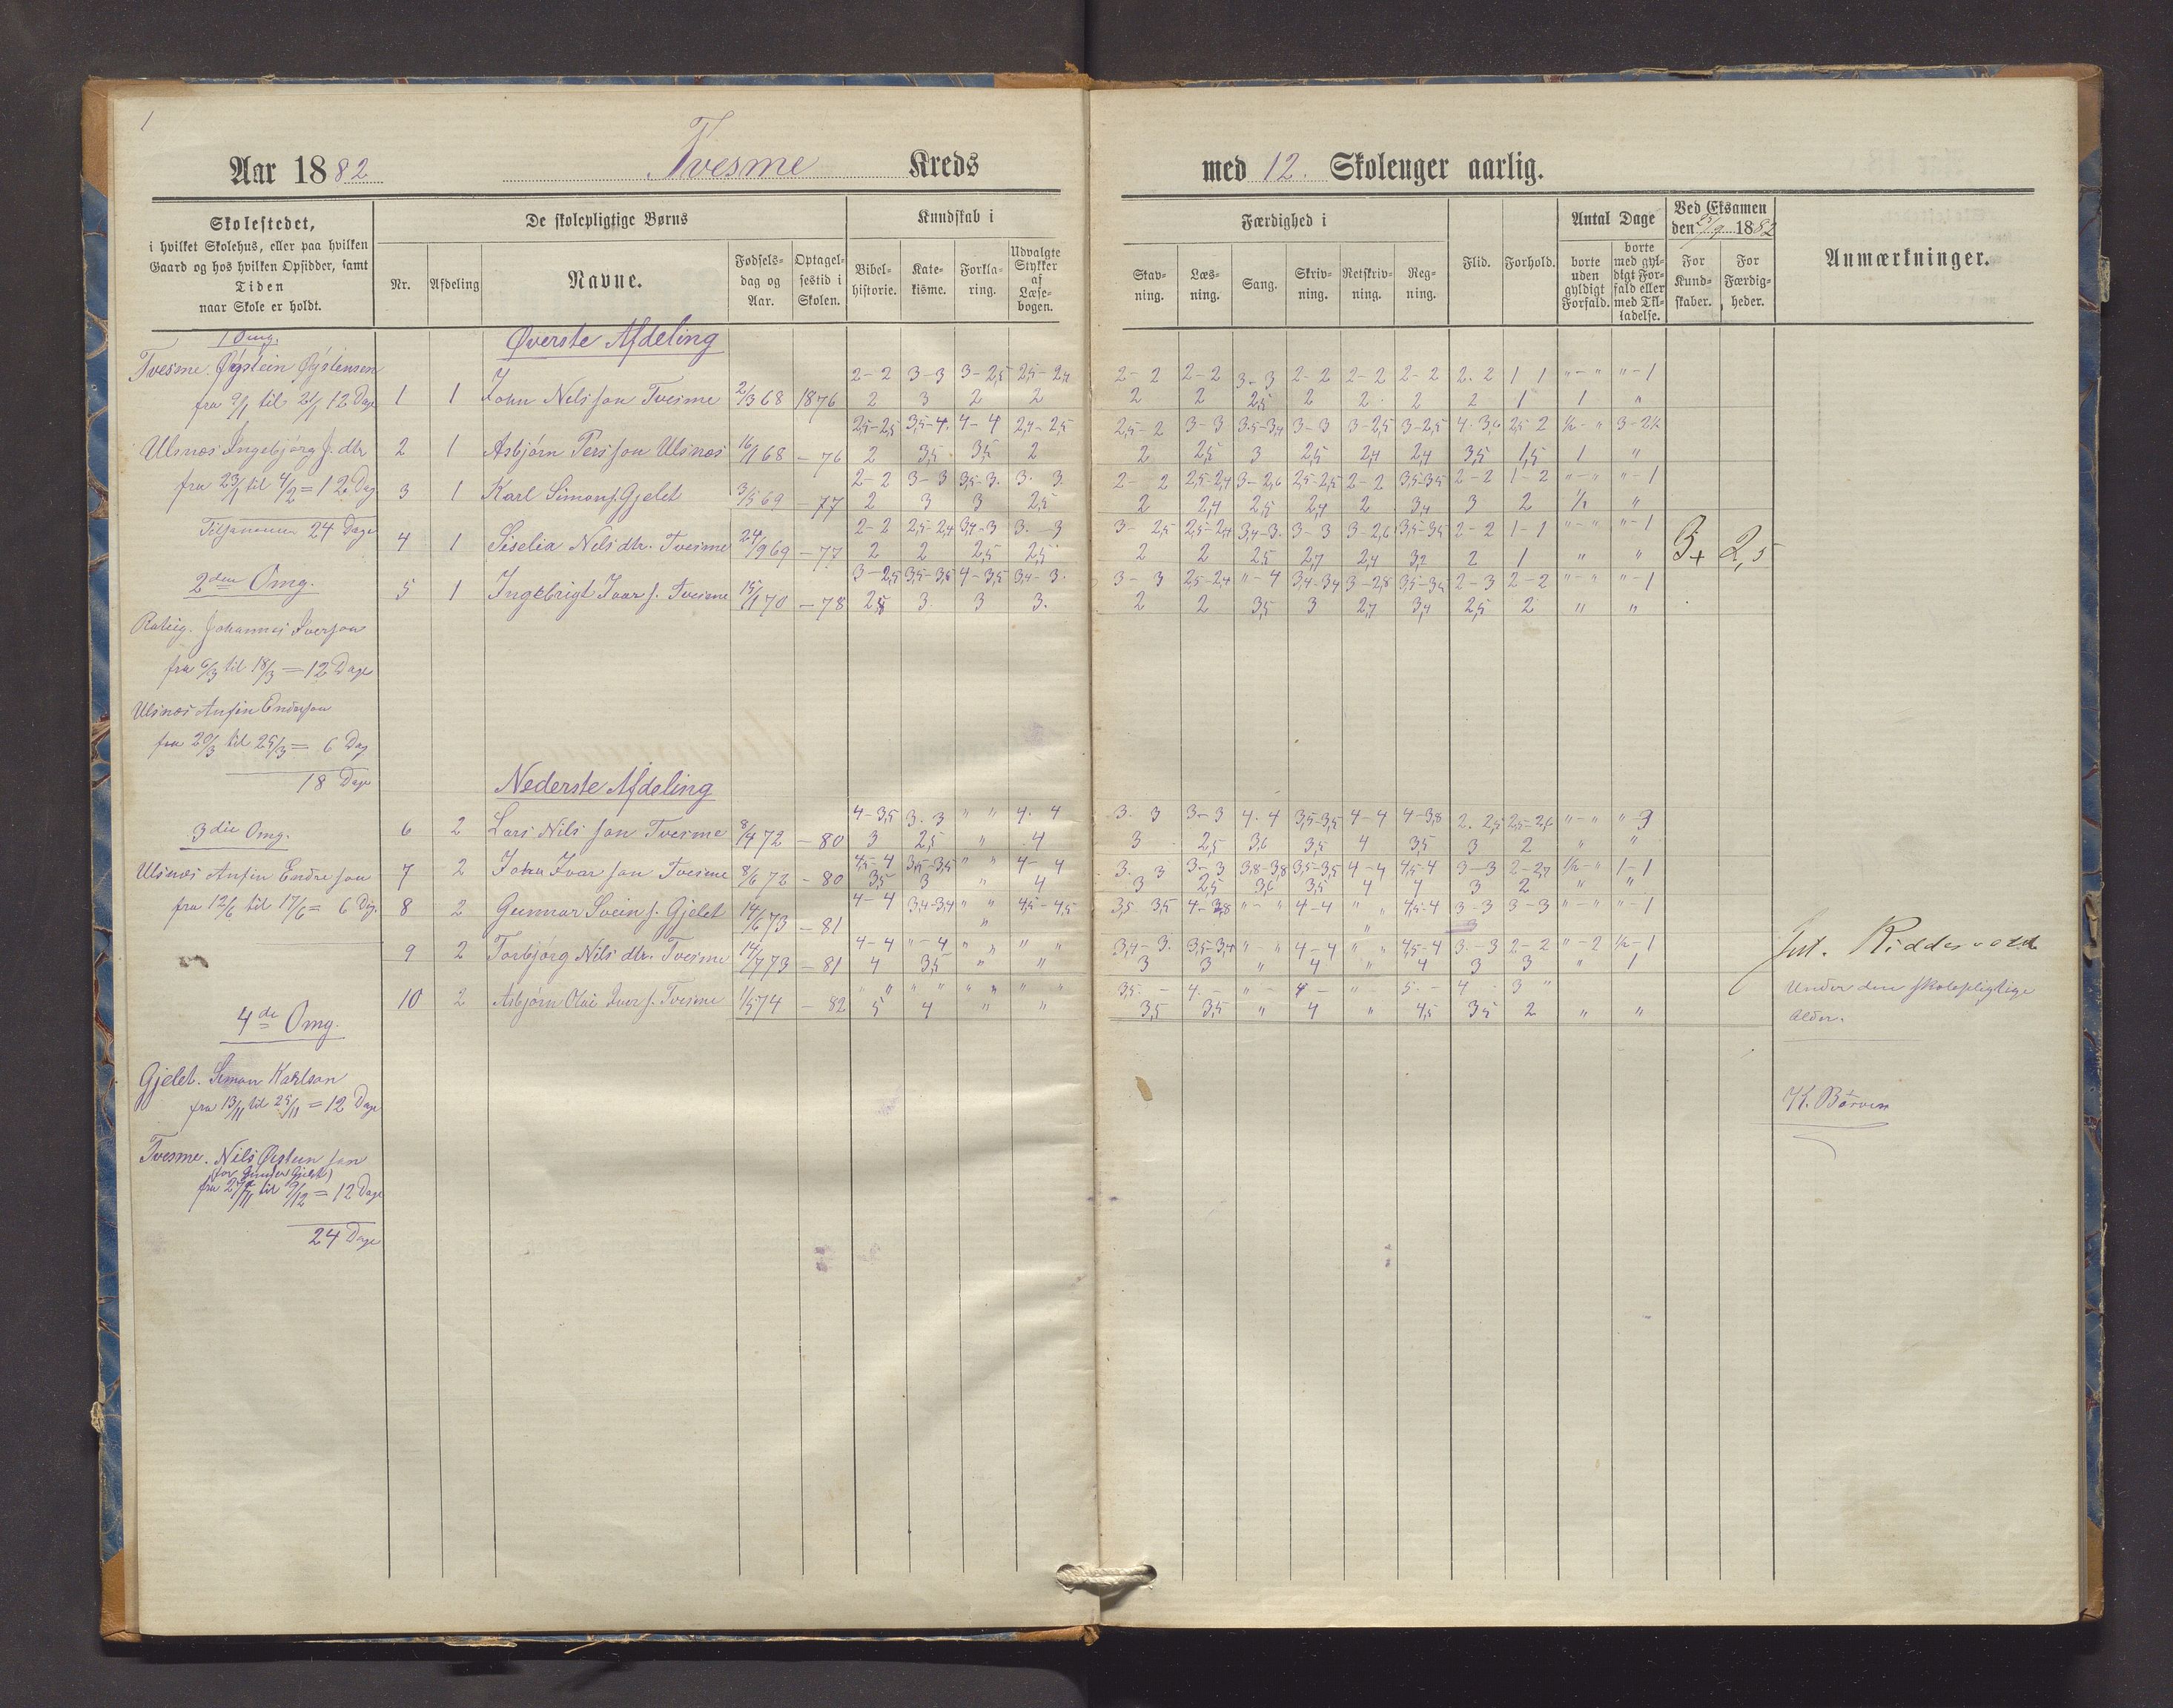 1
Aar 1882 Tvesme Kreds med 12. Skolenger aarlig.
Skolestedet,
i hvilket Skolehus, eller paa hvilken
Gaard og hos hvilken Opsidder, samt
Tiden
naar Skole er holdt.
De skolepligtige Børns
Nr. Afdeling Navne. Fødsels-dag og Aar. Optagel-sestid i Skolen.
Kundskab i
Bibel-historie. Kate-kisme. Forkla-ring. Udvalgte Stykker af Læse-bogen.
Færdighed i
Stav-ning. Læs-ning. Sang. Skriv-ning. Retskriv-ning. Reg-ning. Flid. Forhold.
Antal Dage
borte uden gyldigt Forfald. borte med gyl-digt For-fald eller med Til-ladelse.
Ved Eksamen
den 25/9 1882
For Kund-skaber. For Færdig-heder.
Anmærkninger.
1 Omg.
Tvesme. Øystein Øystensen
fra 9/1 til 21/1 12 Dage
Ulsnes Ingebjørg J. dtr
fra 23/1 til 4/2 = 12 Dag
Tilsammen 24 Dage
2den Omg.
Johannes Iverson
fra 6/3 til 18/3 = 12 Dage
Ulsnes Anfin Endreson
fra 20/3 til 25/3 = 6 Dag
18 Dage
3die Omg.
Ulsnes Anfin Endreson
fra 12/6 til 17/6 = 6 Dg.
4de Omg.
Gjelet. Simon Karlson
fra 13/11 til 25/11 = 12 Dage
Tvesme. Nils Østeinson
(for Gunder Gjelet)
fra 27/11 til 9/12 = 12 Dage
24 Dage
Øverste Afdeling
2-2 3-3 3-2,5 2,5-2,4 2-2 2-2 3-3 2-2 2-2 2-2 2.2 1 1 "-" "-1
1 1 John Nelsson Tvesme 2/3 68 1876 2 3 2 2 2 2 2,5 2 2 2 2 1 1 "
2,5-2,5 3,5-4. 4-4 2,4-2,5 2,5-2 3-3 3,5-3,4 3-3 3-2,5 3-2,5 4.3,6 2,5 2 1/2-" 3-2 1/2
2 1 Asbjørn Persson Ulsnes 16/1 68 - 76 2 3,5 3,5 2 2 2,5 3 2,5 2,4 2,4 3,5 1,5 1 "
2-2 3-3 3,5-3. 3. 3. 2-2 2,5-2,4 3-2,6 2,5-2,5 2-2 3,5-3,5 2-2 1-2 "-" "-1
3 1 Karl Simons. Gjelet 3/5 69 - 77 2 3 3 2,5 2 2,4 2,5 2,4 2 3,4 3 2 1/2 "
2-2 2,5-2,4 3,4-3 3.-3 3-2,5 2,5-2,4 3,4-3. 3-3 3-2,6 3,5-3,5 2-2 1-1 "-" "-1
4 1 Siselia Nelsdtr. Tvesme 24/9 69 - 77 2 2 2,5 2,5 2 2 2,5 2,7 2,4 3,2 2 1 " " 3+ 2,5
3-2,5 3,5-3,5 4-3,5 3,4-3. 3-3 2,5-2,4 "-4 3,4-3,4 3-2,8 3,5-3,4 2-3 2-2 "-" "-1
5 1 Ingebrigt Ivars. Tvesme 15/1 70 - 78 2,5 3 3 3. 2 2 3,5 3 2,7 3,4 2,5 2 " "
Nederste Afdeling
4-3,5 3.3 " " 4.4 3.3 3-3 4.4 3,5-3,5 4-4 4-3,8 2.2,5 2,5-2,6 "-" "-3
6 2 Lars Nilsson Tvesme 8/4 72 - 80 3 2,5 " 4 3 2,5 3,6 3,5 4 3,5 3 2 " "
4,5-4 3,5-3,5 " " 4-4 3.3 3-3 3,8-3,8 3,5-3,5 4-4 4,5-4 3-3 2-2,7 1/2-" 1-1
7 2 John Ivarson Tvesme 8/6 72 - 80 3,5 3 " 4 3 2,5 3,6 3,5 4 4 3 2 " "
4-4 3,4-3,4 " " 4,5-4,5 3,5 3,5 4-3,8 "-" 4-4 " " 4,5-4 3-3 3-3 "-" "-1
8 2 Gunnar Sveins. Gjelet 14/6 73 - 81 " " 3
4-4 "-4 " " " " 3,4-3. 3,5-3,4 "-" 4-4 " " 4,5-4 3.-3 2-2 "-2 1/2-1
9 2 Torbjørg Nilsdtr. Tvesme 14/7 73 - 81 4 3,5 " " 3 3 " 4 " 4 3 3 " 1
" " " " " " " " 3,5.- 4.- "-" 4- " 5.- 4 3 "
10 2 Asbjørn Olai Ivers. Tvesme 1/5 74 - 82 5 4 " " 3,5 3,5 " 4 " 4,5 3,5 2 " "
Just. Riddervold
Under den skolepligtige
Alder.
K. Børven